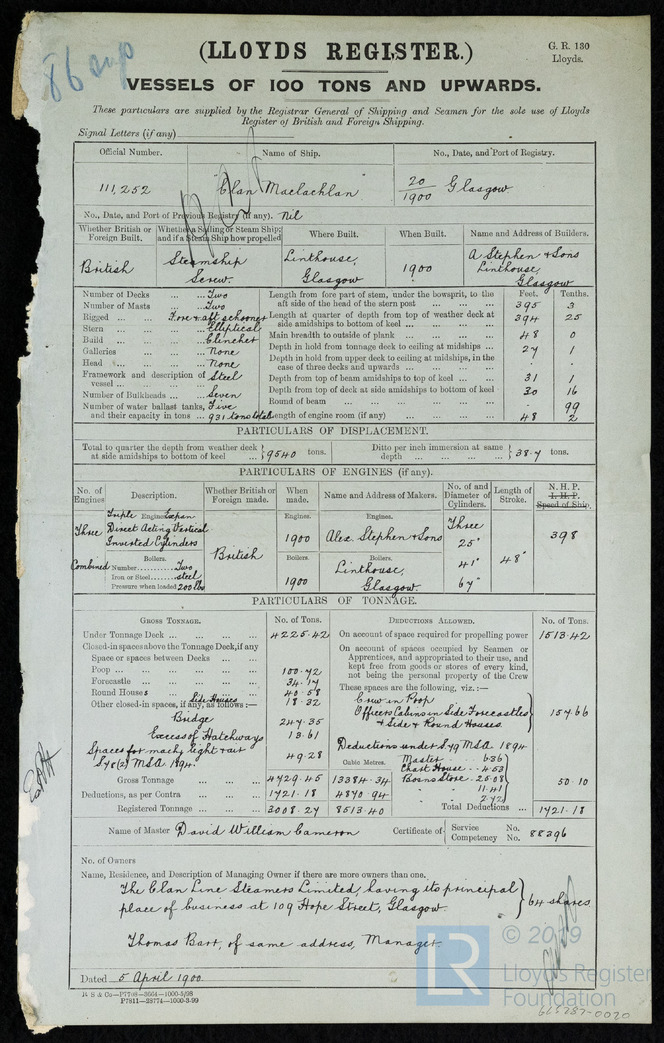 86 sup
(LLOYDS REGISTER.)
G. R. 130
Lloyds.
VESSELS OF 100 TONS AND UPWARDS.
These particulars are supplied by the Registrar General of Shipping and Seamen for the sole use of Lloyds
Register of British and Foreign Shipping.
Signal Letters (if any)
Official Number. Name of Ship. No., Date, and Port of Registry.
111,252 Clan Maclachlan 20/1900 Glasgow
No., Date, and Port of Previous Registry (if any). Nil
Whether British or Foreign Built. Whether a Sailing or Steam Ship; and if a Steam Ship how propelled Where Built. When Built. Name and Address of Builders.
British Steamship Screw. Linthouse, Glasgow 1900 A Stephen & Sons Linthouse, Glasgow
Feet. Tenths.
Number of Decks ... ... Two
Number of Masts ... ... Two
Rigged ... ... Fore & aft schooner
Stern ... ... Elliptical
Build ... ... Clincher
Galleries ... ... None
Head ... ... None
Framework and description of vessel ... ... Steel
Number of Bulkheads ... Seven
Number of water ballast tanks, and their capacity in tons ... Five 931 tons total
Length from fore part of stem, under the bowsprit, to the aft side of the head of the stern post ... 395 3
Length at quarter of depth from top of weather deck at side amidships to bottom of keel ... 394 25
Main breadth to outside of plank ... 48 0
Depth in hold from tonnage deck to ceiling at midships ... 27 1
Depth in hold from upper deck to ceiling at midships, in the case of three decks and upwards ...
Depth from top of beam amidships to top of keel ... 31 1
Depth from top of deck at side amidships to bottom of keel 30 16
Round of beam ... 99
Length of engine room (if any) ... 48 2
PARTICULARS OF DISPLACEMENT.
Total to quarter the depth from weather deck at side amidships to bottom of keel ... 9540 tons. Ditto per inch immersion at same depth ... 38.7 tons.
PARTICULARS OF ENGINES (if any).
No. of Engines Description. Whether British or Foreign made. When made. Name and Address of Makers. No. of and Diameter of Cylinders. Length of Stroke. N. H. P. I. H. P. Speed of Ship.
Three Combined
Triple Engines Expan
Direct Acting Vertical
Inverted Cylinders
Boilers.
Number .......... Two
Iron or Steel ...... steel
Pressure when loaded 200 lbs
British
Engines. 1900
Boilers. 1900
Engines. Alex. Stephen & Sons
Boilers. Linthouse, Glasgow.
Three 25" 41" 67"
48"
398
PARTICULARS OF TONNAGE.
GROSS TONNAGE. No. of Tons. DEDUCTIONS ALLOWED. No. of Tons.
Under Tonnage Deck ... 4225.42
Closed-in spaces above the Tonnage Deck, if any
Space or spaces between Decks ...
Poop ... 100.72
Forecastle ... 34.17
Round Houses ... 40.58
Other closed-in spaces, if any, as follows:— Side Houses 18.32
Bridge 247.35
Excess of Hatchways 13.61
Spaces for machy light & air
S 78(2) MSA 1894. 49.28
Cubic Metres.
Gross Tonnage ... 4729.45 13384.34
Deductions, as per Contra ... 1721.18 4870.94
Registered Tonnage ... 3008.27 8513.40
On account of space required for propelling power 1513.42
On account of spaces occupied by Seamen or Apprentices, and appropriated to their use, and kept free from goods or stores of every kind, not being the personal property of the Crew
These spaces are the following, viz.:—
Crew in Poop
Officers Cabins in Side Forecastles
& Side & Round Houses. 157.66
Deductions under S 79 MSA. 1894
Master .. 6.36
Chart House .. 4.53
Bosns Store .. 25.08
" 11.41
" 2.72
50.10
Total Deductions ... 1721.18
Name of Master David William Cameron Certificate of Service No. Competency No. 88396
No. of Owners
Name, Residence, and Description of Managing Owner if there are more owners than one.
The Clan Line Steamers Limited, having its principal
place of business at 109 Hope Street, Glasgow. 64 shares
Thomas Barr, of same address, Manager.
Dated 5 April 1900.
P7811—28774—1000—3-99
LR
© 2019
Lloyds Register
Foundation
665287-0020